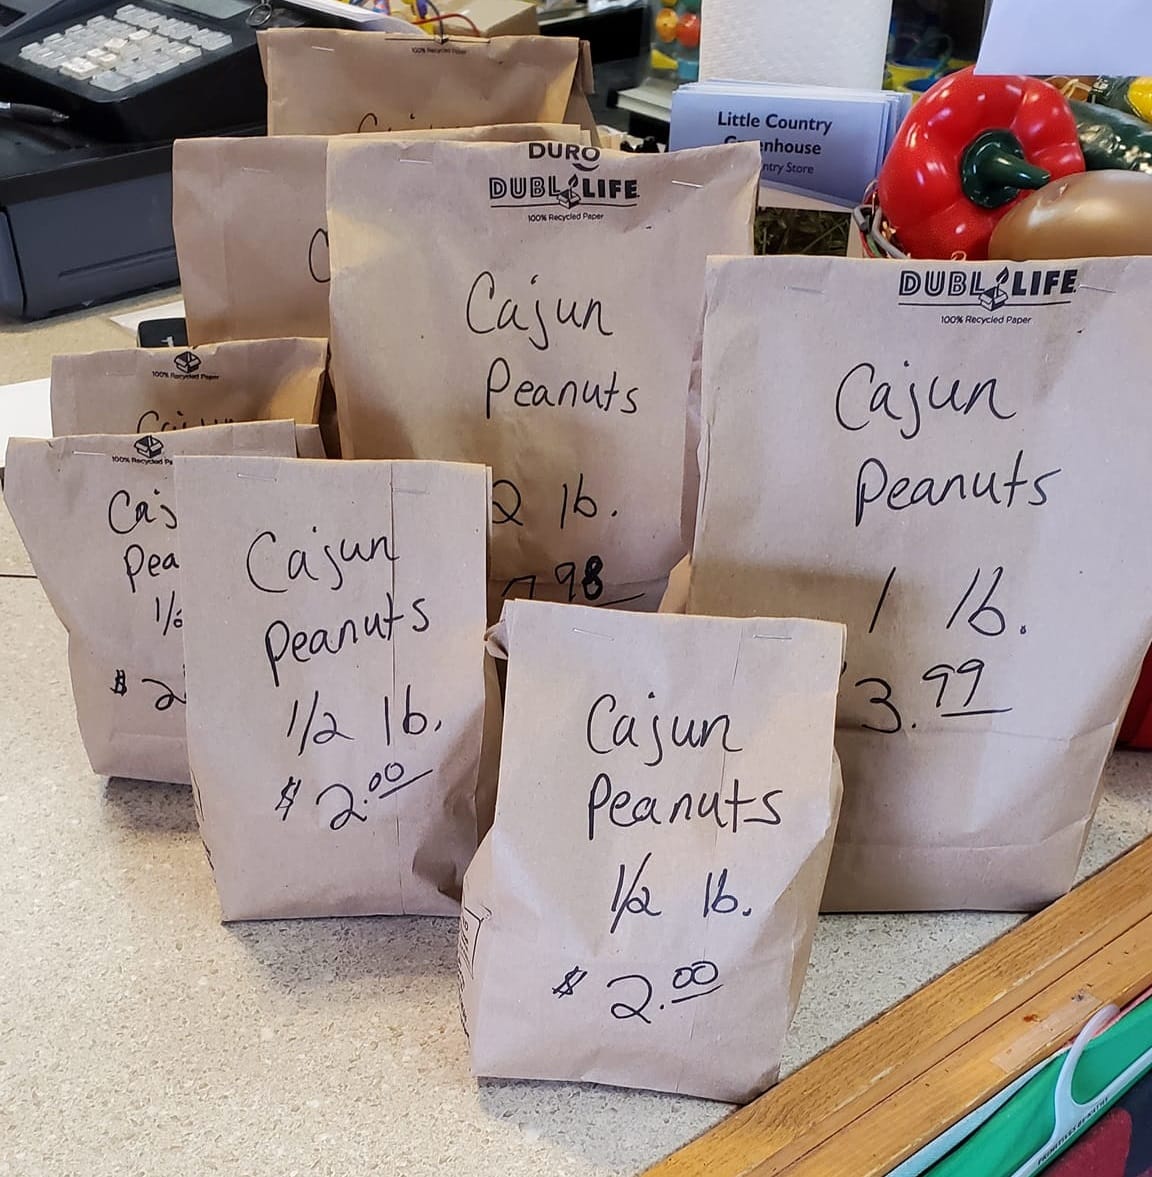 100% Recycled Paper
Little Country
Country Store
DURO
DUBL LIFE
100% Recycled Paper
Cajun
Peanuts
2 lb.
7.98
DUBL LIFE
100% Recycled Paper
Cajun
Peanuts
1 lb.
3.99
100% Recycled Paper
Cajun
100% Recycled Pa
Caj
Pea
1/2
$ 2
Cajun
Peanuts
1/2 lb.
$ 2.00
Cajun
Peanuts
1/2 lb.
$ 2.00